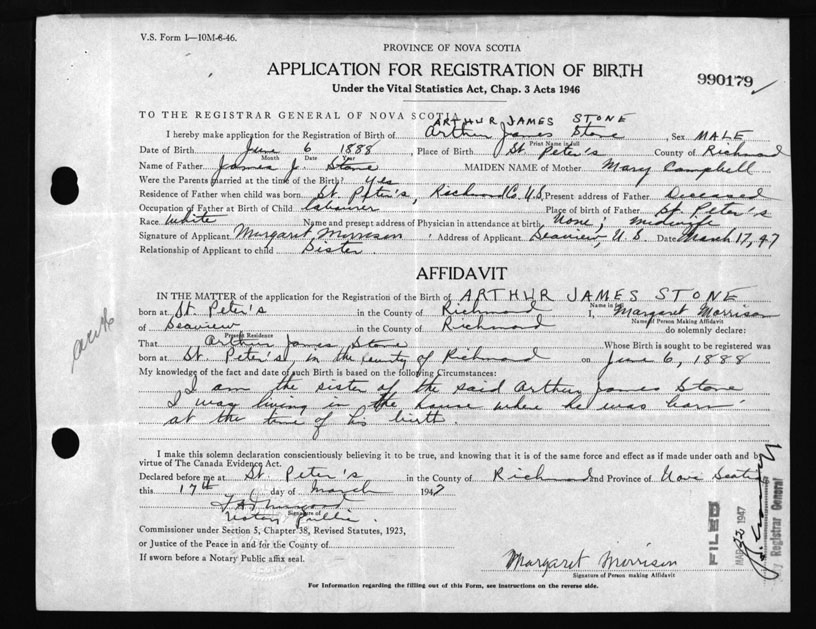 V.S. Form 1—10M-6-46.
PROVINCE OF NOVA SCOTIA
APPLICATION FOR REGISTRATION OF BIRTH
990179
Under the Vital Statistics Act, Chap. 3 Acts 1946
TO THE REGISTRAR GENERAL OF NOVA SCOTIA
ARTHUR JAMES STONE
I hereby make application for the Registration of Birth of Arthur James Stone, Sex MALE
Print Name in full
Date of Birth June 6 1888, Place of Birth St. Peter's County of Richmond
Month Date Year
Name of Father James J. Stone MAIDEN NAME of Mother Mary Campbell
Were the Parents married at the time of the Birth? Yes
Residence of Father when child was born St. Peter's, Richmond Co. N.S. Present address of Father Deceased
Occupation of Father at Birth of Child Labourer Place of birth of Father St. Peter's
Race White Name and present address of Physician in attendance at birth None; midwife
Signature of Applicant Margaret Morrison Address of Applicant Seaview, N.S. Date March 17, 47
Relationship of Applicant to child Sister
AFFIDAVIT
IN THE MATTER of the application for the Registration of the Birth of ARTHUR JAMES STONE
Name in full
born at St. Peter's in the County of Richmond I, Margaret Morrison
Name of Person Making Affidavit
of Seaview in the County of Richmond do solemnly declare:
Present Residence
That Arthur James Stone Whose Birth is sought to be registered was
born at St. Peter's, in the county of Richmond on June 6, 1888
My knowledge of the fact and date of such Birth is based on the following Circumstances:
I am the sister of the said Arthur James Stone
I was living in the house where he was born
at the time of his birth.
I make this solemn declaration conscientiously believing it to be true, and knowing that it is of the same force and effect as if made under oath and by
virtue of The Canada Evidence Act.
Declared before me at St. Peter's in the County of Richmond and Province of Nova Scotia
this 17th day of March 1947
Signature of
Notary Public.
Commissioner under Section 5, Chapter 38, Revised Statutes, 1923,
or Justice of the Peace in and for the County of
If sworn before a Notary Public affix seal.
Margaret Morrison
Signature of Person making Affidavit
For Information regarding the filling out of this Form, see instructions on the reverse side.
FILED
MAR 22 1947
Registrar General